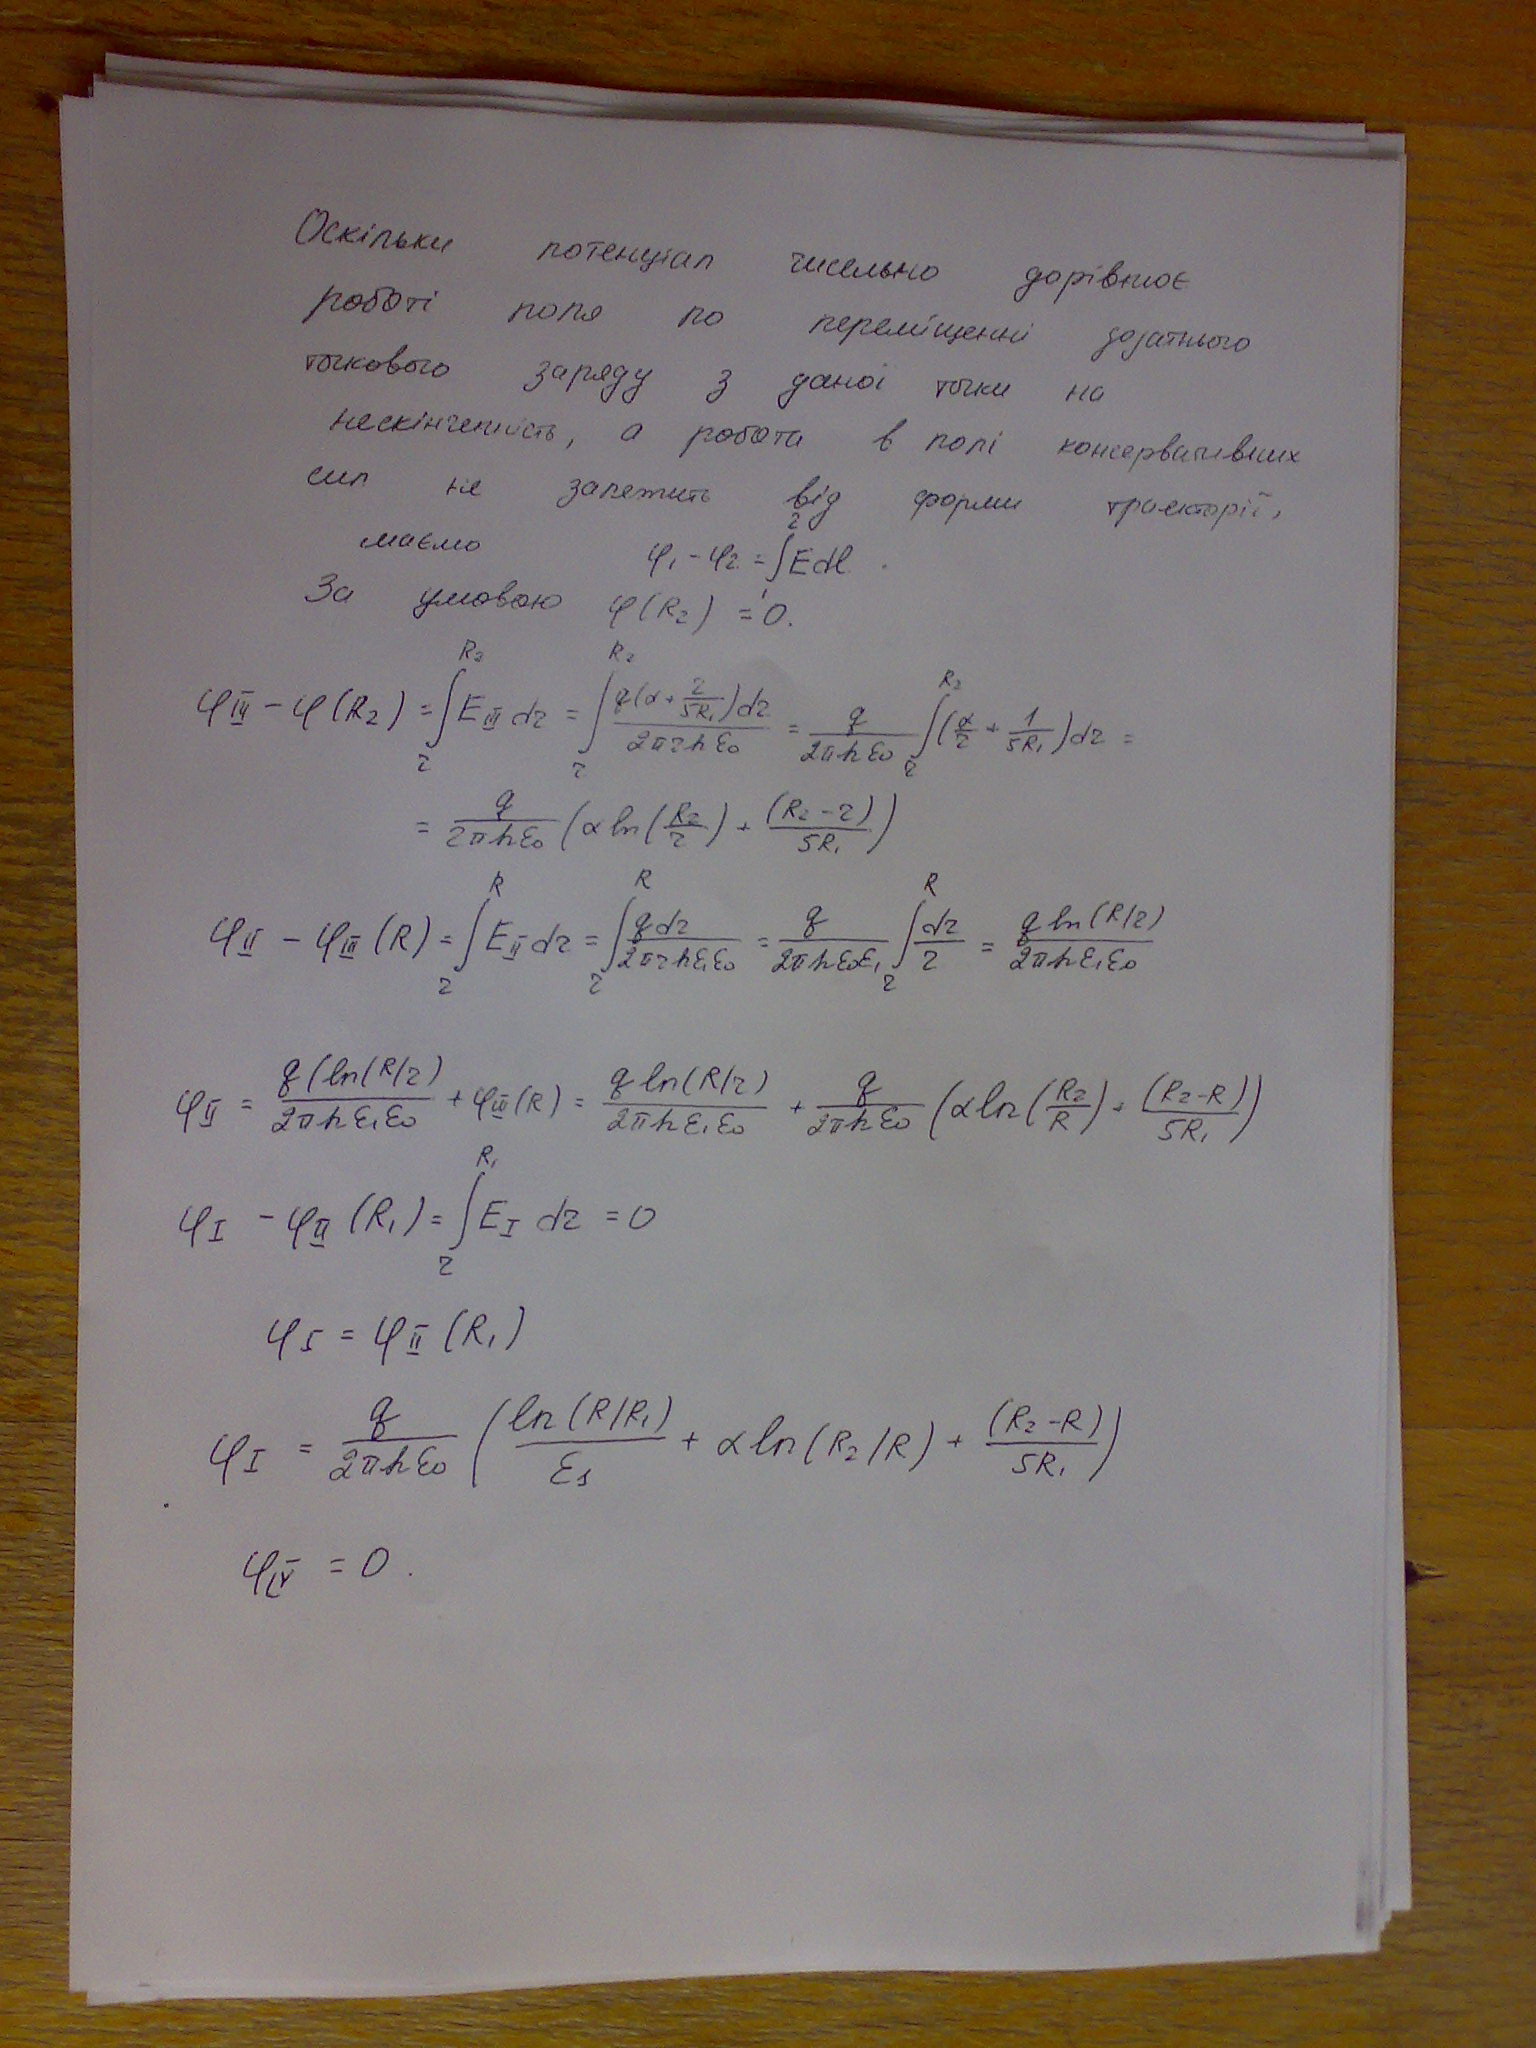 Оскільки потенціал чисельно дорівнює
роботі поля по переміщенні додатнього
точкового заряду з даної точки на
нескінченність, а робота в полі консервативних
сил не залежить від форми траєкторії,
маємо φ₁ - φ₂ = ∫₁² E dl.
За умовою φ(R₂) = 0.
φ_III - φ(R₂) = ∫_r^{R₂} E_III dr = ∫_r^{R₂} q(α + r/5R₁)dr / 2πrhε₀ = q/2πhε₀ ∫_r^{R₂} (α/r + 1/5R₁)dr =
= q/2πhε₀ (α ln(R₂/r) + (R₂ - r)/5R₁)
φ_II - φ_III(R) = ∫_r^R E_II dr = ∫_r^R q dr / 2πrhε₁ε₀ = q/2πhε₀ε₁ ∫_r^R dr/r = q ln(R/r) / 2πhε₁ε₀
φ_II = q(ln(R/r) / 2πhε₁ε₀ + φ_III(R) = q ln(R/r) / 2πhε₁ε₀ + q/2πhε₀ (α ln(R₂/R) + (R₂ - R)/5R₁)
φ_I - φ_II(R₁) = ∫_r^{R₁} E_I dr = 0
φ_I = φ_II(R₁)
φ_I = q/2πhε₀ (ln(R/R₁)/ε₁ + α ln(R₂/R) + (R₂ - R)/5R₁)
φ_IV = 0.